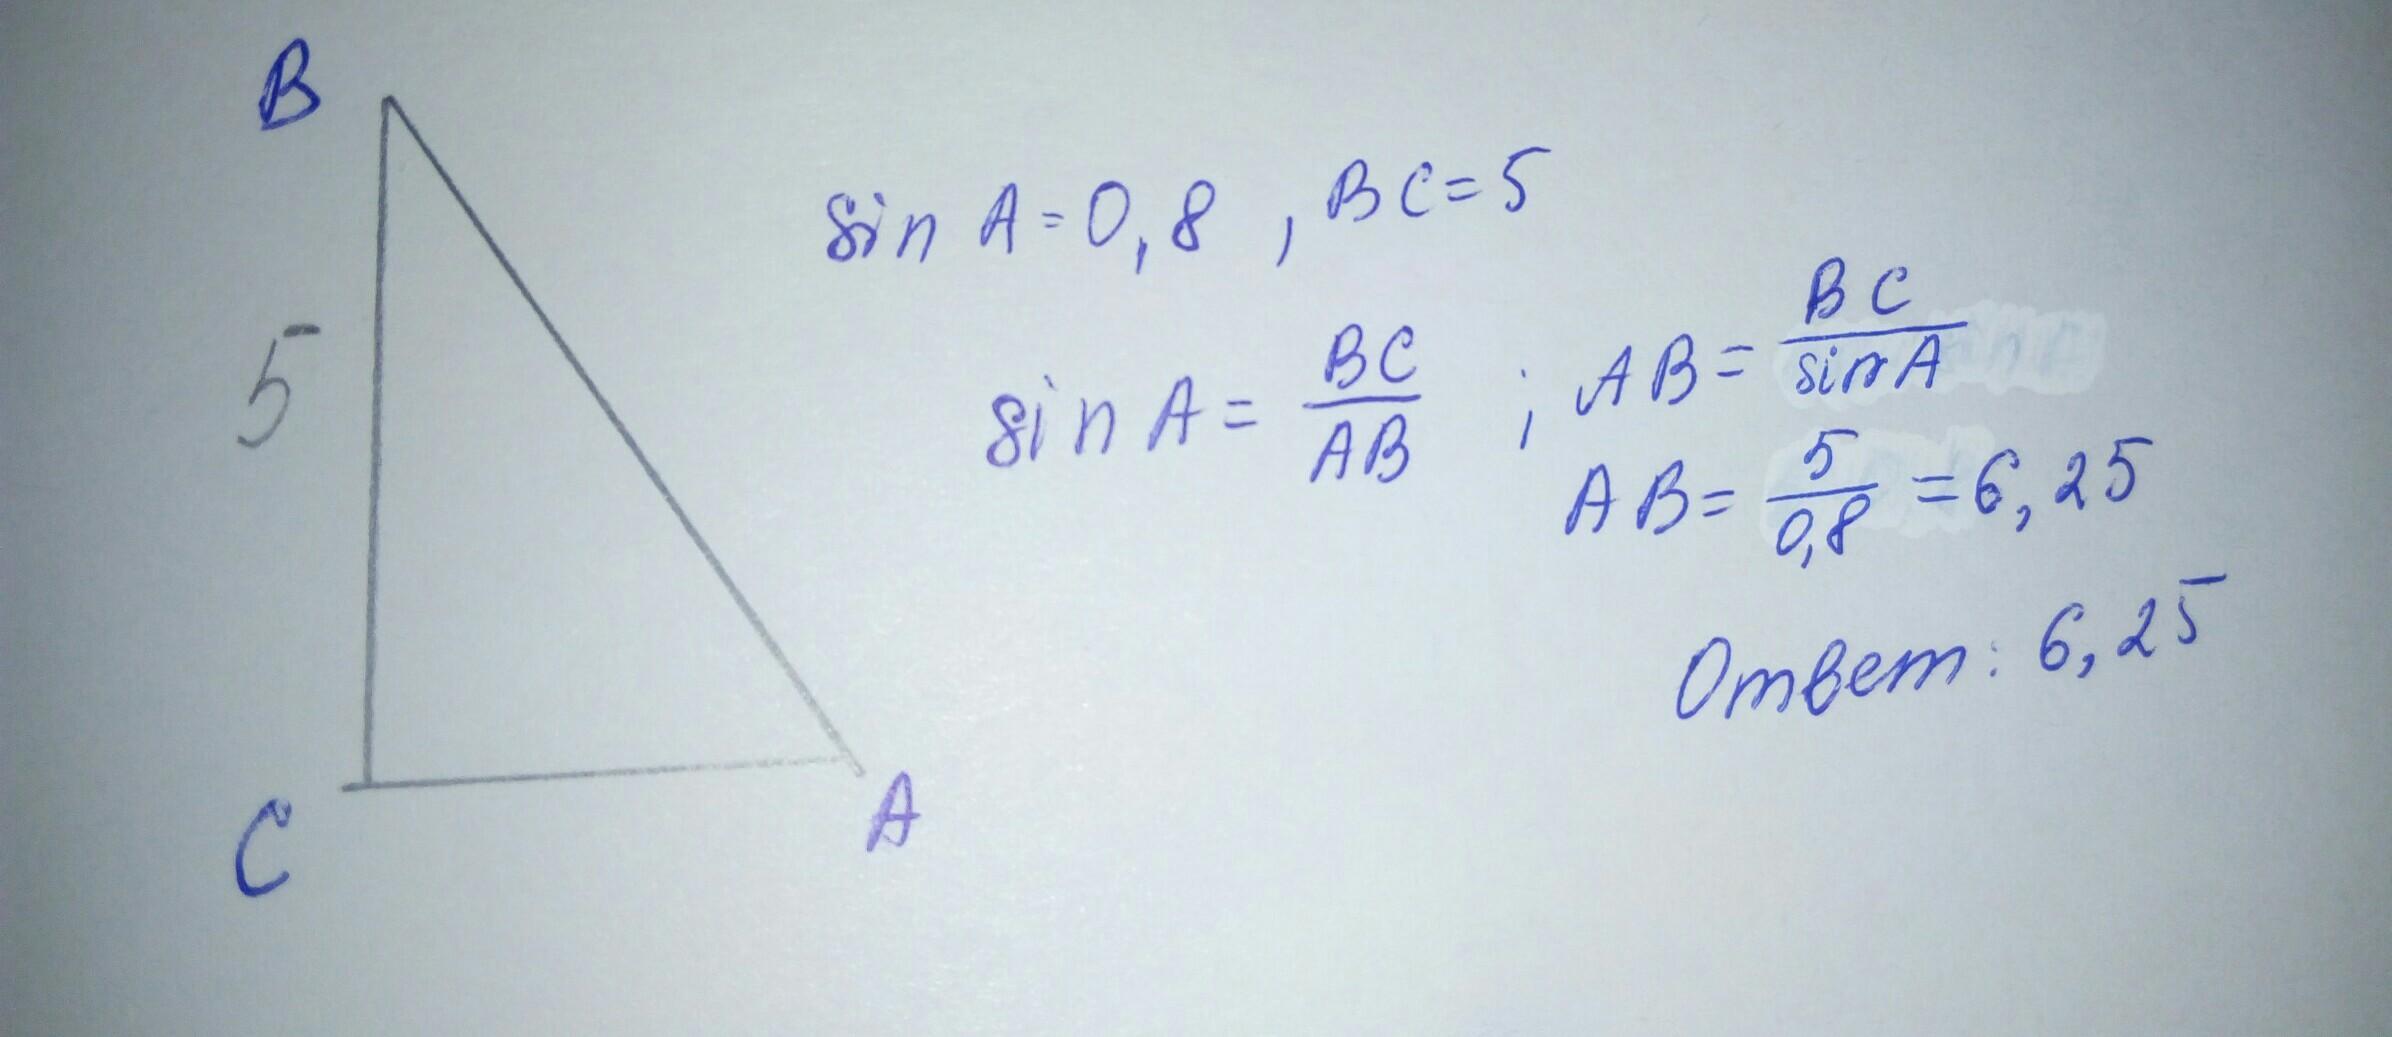 B
5
C
A
sin A = 0,8 , BC = 5
sin A = BC/AB ; AB = BC/sin A
AB = 5/0,8 = 6,25
Ответ: 6,25